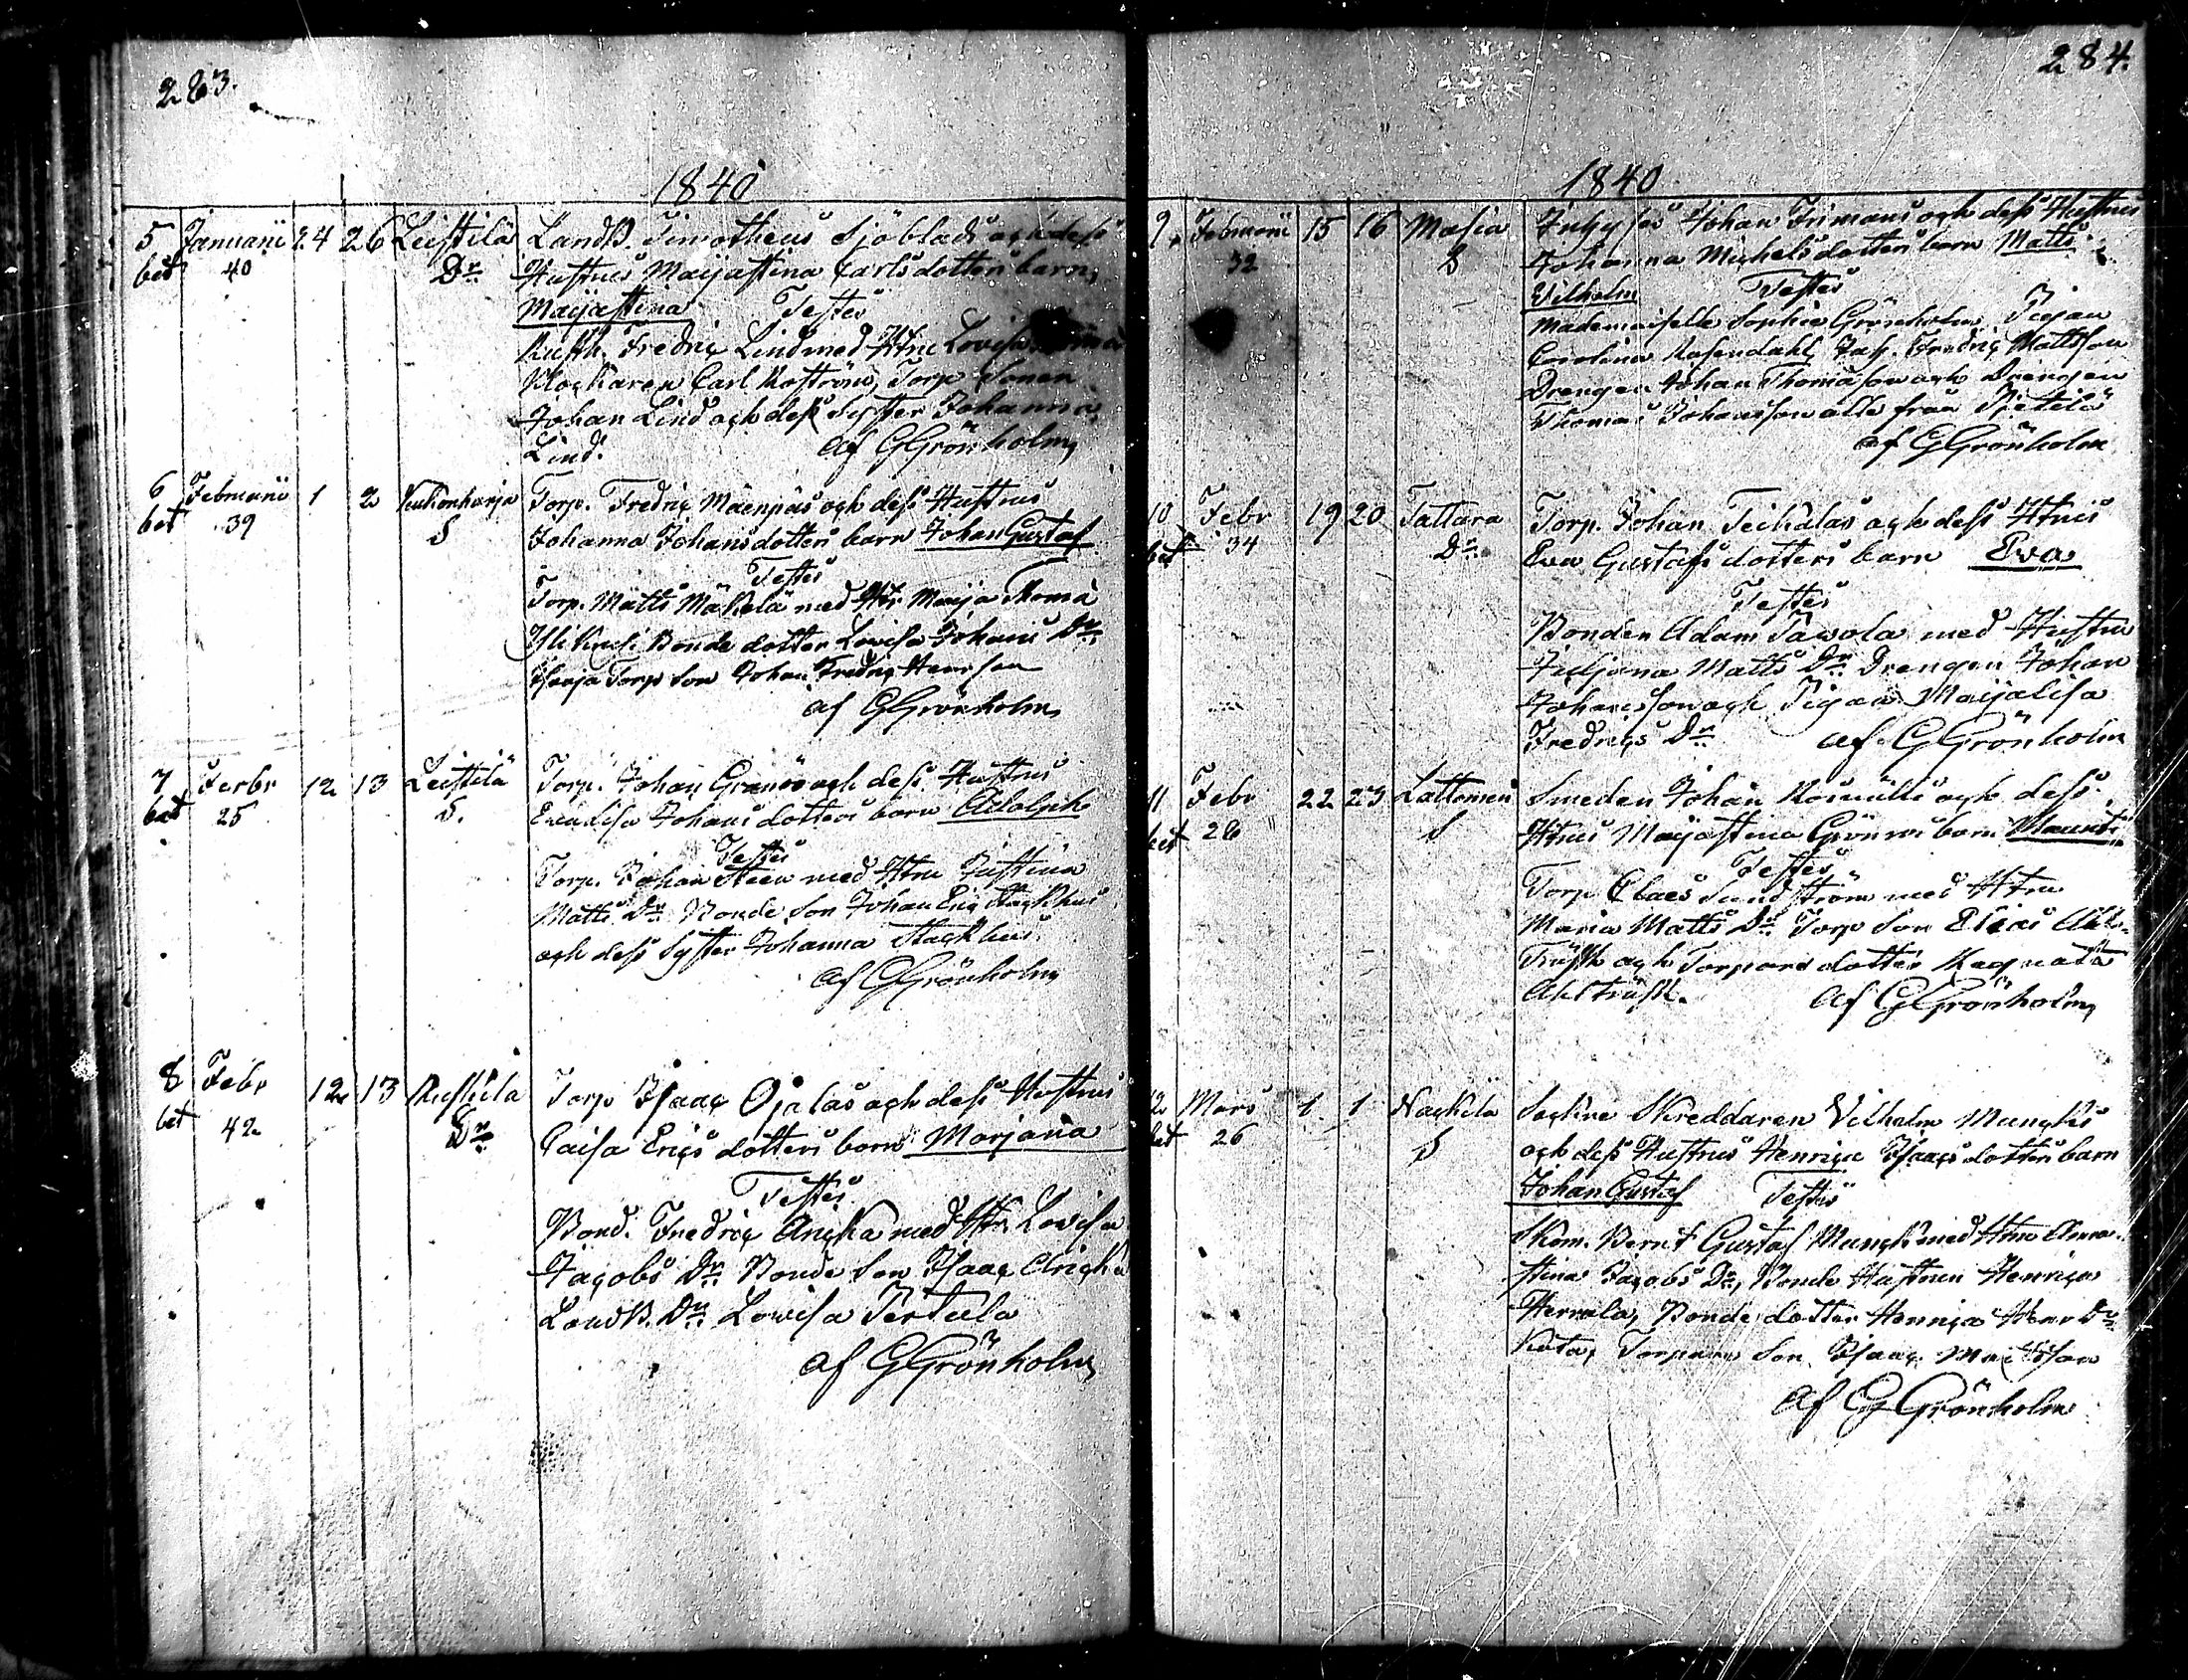 283.
1840
5 Januarii 24 26 Leistilä Landb. Timotheus Sjöblads och dess
bet 40 Dr Hustrus Maijastina Carlsdotters barn,
Maijastina Testes
Rusth. Fredric Lind med Htru Lovisa
Klockaren Carl Roström, Torp Sonen
Johan Lind och dess Syster Johanna
Lind. af G Grönholm,
6 Februarii 1 2 Kukonharja Torp. Fredric Mäenpäs och dess Hustrus
bet 39 S Johanna Johansdotters barn Johan Gustaf
Testes
Torp. Matts Mäkelä med Htr. Maija Thoma
Bonde dotter Lovisa Johans Dr
Harja Torp Son Johan Fredric Henrson
af G Grönholm,
7 Ferbr 12 13 Leistilä Torp. Johan Granroos och dess Hustrus
bet 25 S. Evalisa Johans dotters barn Adolph
Testes
Torp. Johan Steen med Htru Justina
Matts Dr Bonde Son Johan Eric Stackhus
och dess Syster Johanna Stackhus.
af G Grönholm,
8 Febr 12 13 Ruskila Torp Isaac Ojalas och dess Hustrus
bet 42 Dr Caisa Erics dotters barn Marjana
Testes
Bond. Fredric Ancka med Htr. Lovisa
Jacobs Dr Bonde Son Isaac
Landb. Dr Lovisa Pertula
af G Grönholm,
284.
1840
9 Februarii 15 16 Masia Inhyses Johan Frimans och dess Hustrus
32 S Johanna Michelsdotters barn Matts
Vilhelm Testes
Mademoiselle Sophie Grönholm, Pigan
Carolina Rosendahl, Fredric Mattsson
Drengen Johan Thomasson och Drengen
Thomas Johansson alla från Pietilä
af G Grönholm
10 Febr 19 20 Tattara Torp. Johan Teikalas och dess Htrus
bet 34 Dr Eva Gustafs dotters barn Eva
Testes
Bonden Adam Sawola med Hustru
Juljana Matts Dr Drengen Johan
Johansson och Pigan Maijalisa
Fredrics Dr af G Grönholm
11 Febr 22 23 Lattomeri Smeden Johan och dess
bet 28 S Htrus Maijastina Grönroos barn
Testes
Torp Claes Sundström med Htru
Maria Matts Dr Torp Son Elias Ahl-
Träsk och Torpare dotter
Ahlträsk. af G Grönholm,
12 Mars 1 1 Nackila Sockne Skreddaren Vilhelm Muncks
bet 26 S och dess Hustrus Henrica Isaacs dotters barn
Johan Gustaf Testes
Skom. Bernt Gustaf Munck med Htru Anna
stina Jacobs Dr, Bonde Hustrun Henrica
Herrala, Bonde dotter Henrica Henr Dr
Kota, Torpare Son Isaac Mattsson
af G Grönholm